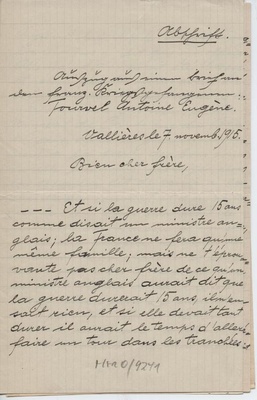 Abschrift.
Auszug aus einem Brief an
den franz. Kriegsgefangenen:
Fourvel Antoine Eugène.
Vallières le 7 novemb 1915.
Bien cher frère,
--- Et si la guerre dure 15 ans
comme disait un ministre an-
glais; la France ne fera qu'une
même famille; mais ne t'épou-
vante pas cher frère de ce qu'un
ministre anglais aurait dit que
la guerre durerait 15 ans, il n'en
sait rien, et si elle devait tant
durer il aurait le temps d'aller
faire un tour dans les tranchées